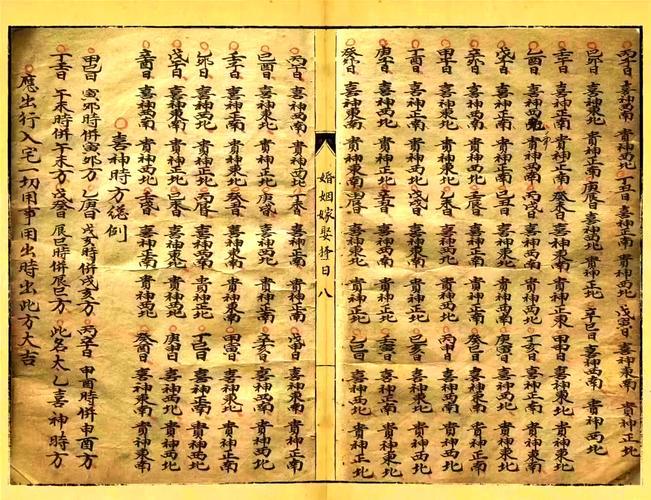 丙子日 喜神西南 貴神西北 丁丑日 喜神正南 貴神西北 戊寅日 喜神東南 貴神正北
己卯日 喜神東北 貴神正南 庚辰日 喜神西北 貴神正北 辛巳日 喜神西南 貴神西北
壬午日 喜神正南 貴神正東 癸未日 喜神東南 貴神正東 甲申日 喜神東北 貴神東北
乙酉日 喜神西北 貴神西北 丙戌日 喜神西南 貴神西北 丁亥日 喜神正南 貴神正東
戊子日 喜神東南 貴神正北 己丑日 喜神東北 貴神正北 庚寅日 喜神西北 貴神正南
辛卯日 喜神西南 貴神正南 壬辰日 喜神正南 貴神正東 癸巳日 喜神東南 貴神東南
甲午日 喜神東北 貴神正北 乙未日 喜神西北 貴神西北 丙申日 喜神西南 貴神西北
丁酉日 喜神正南 貴神西北 戊戌日 喜神東南 貴神正北 己亥日 喜神東北 貴神正北
庚子日 喜神西北 貴神正北 辛丑日 喜神西南 貴神正南 壬寅日 喜神正南 貴神正東
癸卯日 喜神東南 貴神東南 甲辰日 喜神東北 貴神正北 乙巳日 喜神西北 貴神正北
婚姻嫁娶擇日 八
丙午日 喜神西南 貴神西北 丁未日 喜神正南 貴神正南 戊申日 喜神東南 貴神正南
己酉日 喜神東北 貴神正北 庚戌日 喜神西北 貴神正南 辛亥日 喜神西南 貴神西北
壬子日 喜神正南 貴神正東 癸丑日 喜神東南 貴神東南 甲寅日 喜神東北 貴神正南
乙卯日 喜神西北 貴神正北 丙辰日 喜神西南 貴神西北 丁巳日 喜神正南 貴神正東
戊午日 喜神東南 貴神正北 己未日 喜神東北 貴神正北 庚申日 喜神西北 貴神西北
辛酉日 喜神西南 貴神西南 壬戌日 喜神正南 貴神正南 癸亥日 喜神東南 貴神東南
喜神時方總例
甲己日 寅卯時併寅卯方 乙庚日 戌亥時併戌亥方 丙辛日 申酉時併申酉方
丁壬日 午未時併午未方 戊癸日 辰巳時併辰巳方 此名太乙喜神時方
應出行入宅一切用事用出時出此方大吉